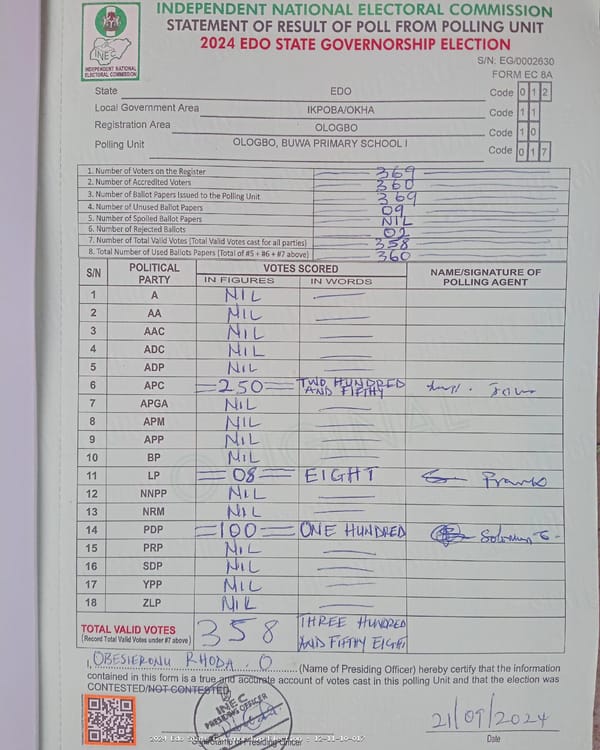 INDEPENDENT NATIONAL ELECTORAL COMMISSION
STATEMENT OF RESULT OF POLL FROM POLLING UNIT
2024 EDO STATE GOVERNORSHIP ELECTION
INEC
INDEPENDENT NATIONAL
ELECTORAL COMMISSION
S/N: EG/0002630
FORM EC 8A
State EDO Code 0 1 2
Local Government Area IKPOBA/OKHA Code 1 1
Registration Area OLOGBO Code 1 0
Polling Unit OLOGBO, BUWA PRIMARY SCHOOL I Code 0 1 7
1. Number of Voters on the Register 369
2. Number of Accredited Voters 360
3. Number of Ballot Papers Issued to the Polling Unit 369
4. Number of Unused Ballot Papers 09
5. Number of Spoiled Ballot Papers NIL
6. Number of Rejected Ballots 02
7. Number of Total Valid Votes (Total Valid Votes cast for all parties) 358
8. Total Number of Used Ballots Papers (Total of #5 + #6 + #7 above) 360
S/N POLITICAL PARTY VOTES SCORED NAME/SIGNATURE OF POLLING AGENT
IN FIGURES IN WORDS
1 A NIL
2 AA NIL
3 AAC NIL
4 ADC NIL
5 ADP NIL
6 APC =250= TWO HUNDRED AND FIFTY
7 APGA NIL
8 APM NIL
9 APP NIL
10 BP NIL
11 LP =08= EIGHT Frank
12 NNPP NIL
13 NRM NIL
14 PDP =100= ONE HUNDRED
15 PRP NIL
16 SDP NIL
17 YPP NIL
18 ZLP NIL
TOTAL VALID VOTES 358 THREE HUNDRED
(Record Total Valid Votes under #7 above) AND FIFTY EIGHT
I, OBESIERONU RHODA . O (Name of Presiding Officer) hereby certify that the information
contained in this form is a true and accurate account of votes cast in this polling Unit and that the election was
CONTESTED/NOT CONTESTED.
INEC
PRESIDING OFFICER
21/09/2024
Sign/Stamp of Presiding Officer
Date